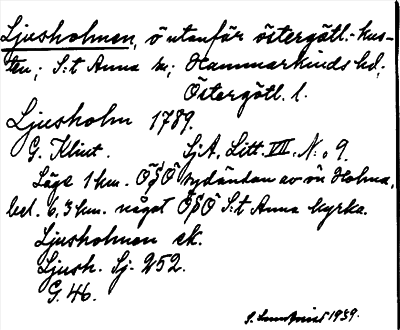 Ljusholmen, ö utanför östergötl.-kus-
ten; S:t Anna sn; Hammarkinds hd;
Östergötl. l.
Ljusholm 1789.
G. Klint. SjA, Litt. VII. N:o 9.
Läge 1 km. ÖSÖ sydändan av ön Holma,
bel. 6,3 km. något ÖSÖ S:t Anna kyrka.
Ljusholmen ek.
Ljush. Sj. 252.
G. 46.
1939.